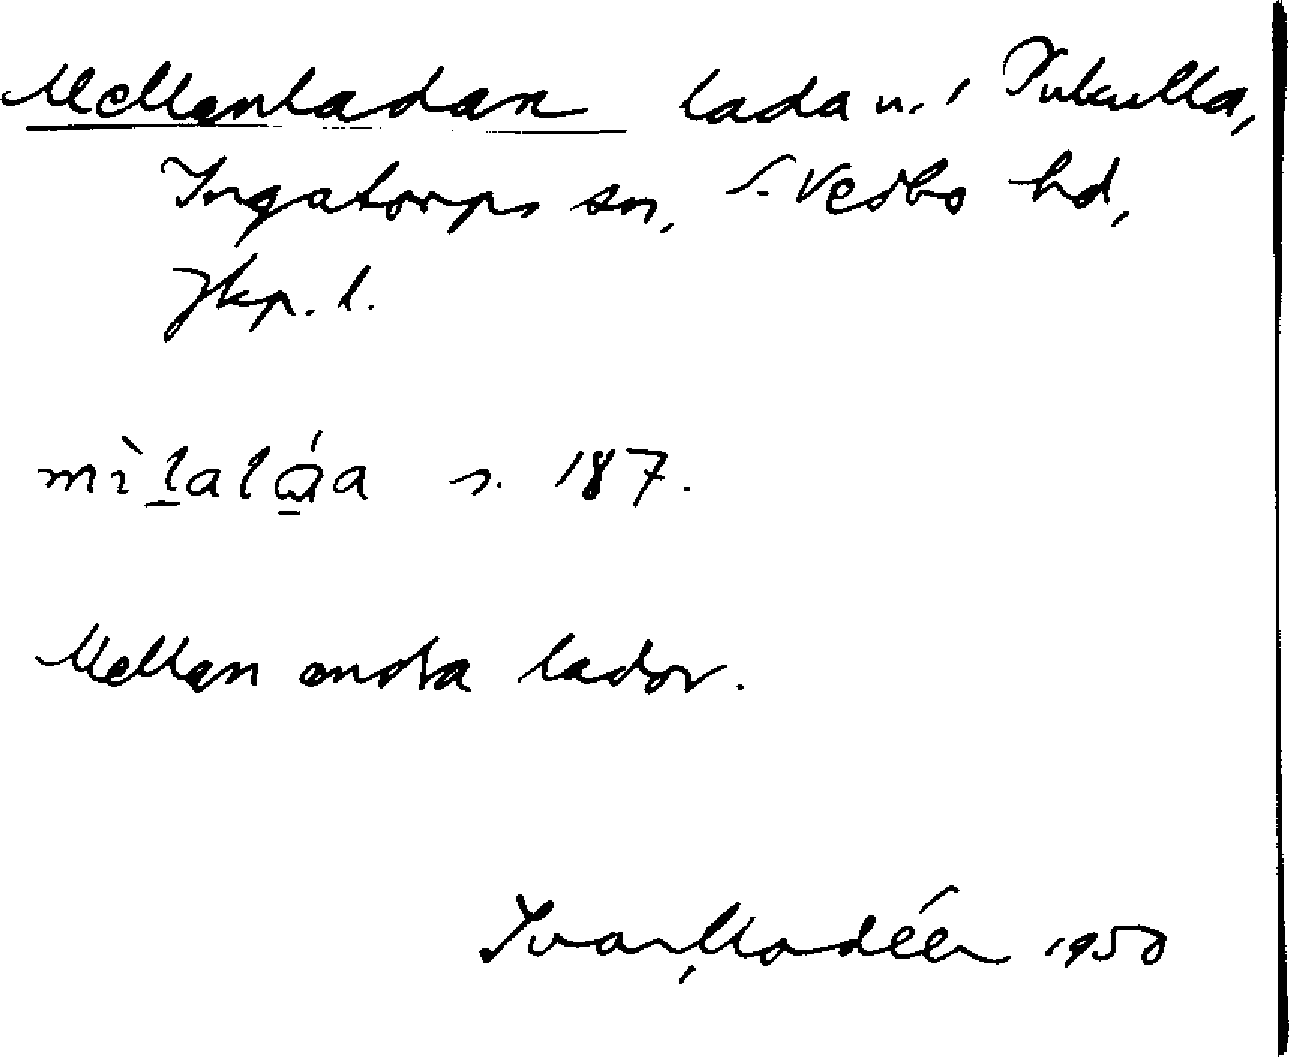 Mellanladan lada n. i Pukulla,
Ingatorps sn, S. Vedbo hd,
Jkp. l.
mìlalá̱a s. 187.
Mellan andra lador.
Ivar Modéer 1950